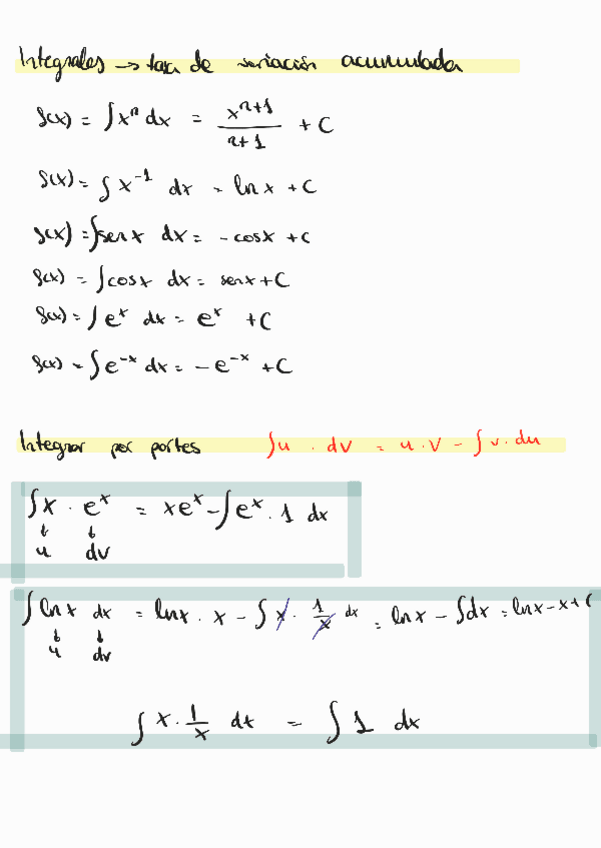 Integrales → tasa de variación acumulada
f(x) = ∫xⁿ dx = xⁿ⁺¹/n+1 + C
f(x) = ∫ x⁻¹ dx = ln x + C
f(x) = ∫senx dx = -cosx + c
f(x) = ∫cosx dx = senx + C
f(x) = ∫ eˣ dx = eˣ + C
f(x) = ∫ e⁻ˣ dx = -e⁻ˣ + C
Integrar por partes ∫u · dv = u · v - ∫v · du
∫x · eˣ = xeˣ - ∫eˣ · 1 dx
u dv
∫ln x dx = lnx · x - ∫ x · 1/x dx = ln x - ∫dx = lnx - x + C
u dv
∫ x · 1/x dx = ∫ 1 dx